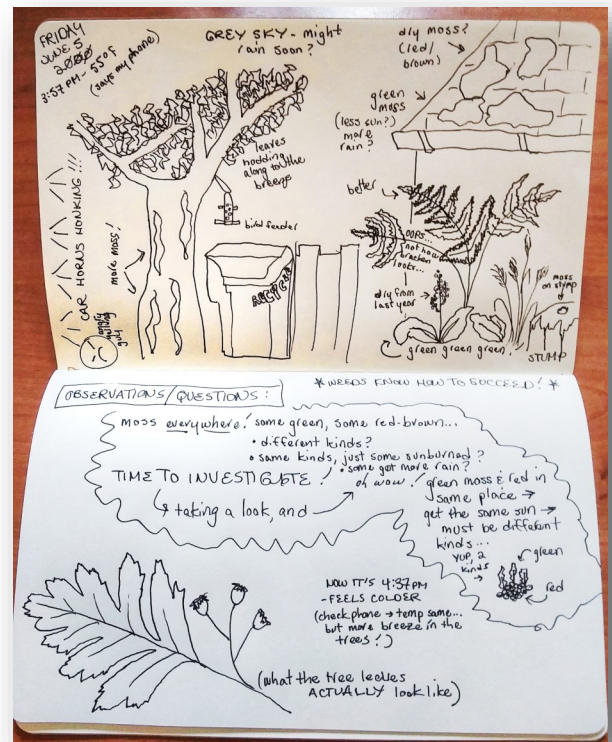 FRIDAY
JUNE 5
3:57 PM - 55°F
(says my phone)
GREY SKY - might
rain soon?
dry moss?
(red/
brown)
green
moss
(less sun?)
more
rain?
leaves
nodding
along to the
breeze
bird feeder
CAR HORNS HONKING!!!
more moss!
angry
yelling
guy
RECYCLE
better
OOPS...
not how
bracken
looks...
dry from
last year
moss
on stump
green green green
STUMP
OBSERVATIONS/QUESTIONS:
* WEEDS KNOW HOW TO SUCCEED! *
moss everywhere! some green, some red-brown...
• different kinds?
• same kinds, just some sunburned?
• some get more rain?
TIME TO INVESTIGATE!
taking a look, and
oh wow! green moss & red in
same place →
get the same sun →
must be different
kinds...
YUP, 2
kinds
green
red
NOW IT'S 4:37PM
- FEELS COLDER
(check phone → temp same...
but more breeze in the
trees!)
(what the tree leaves
ACTUALLY look like)